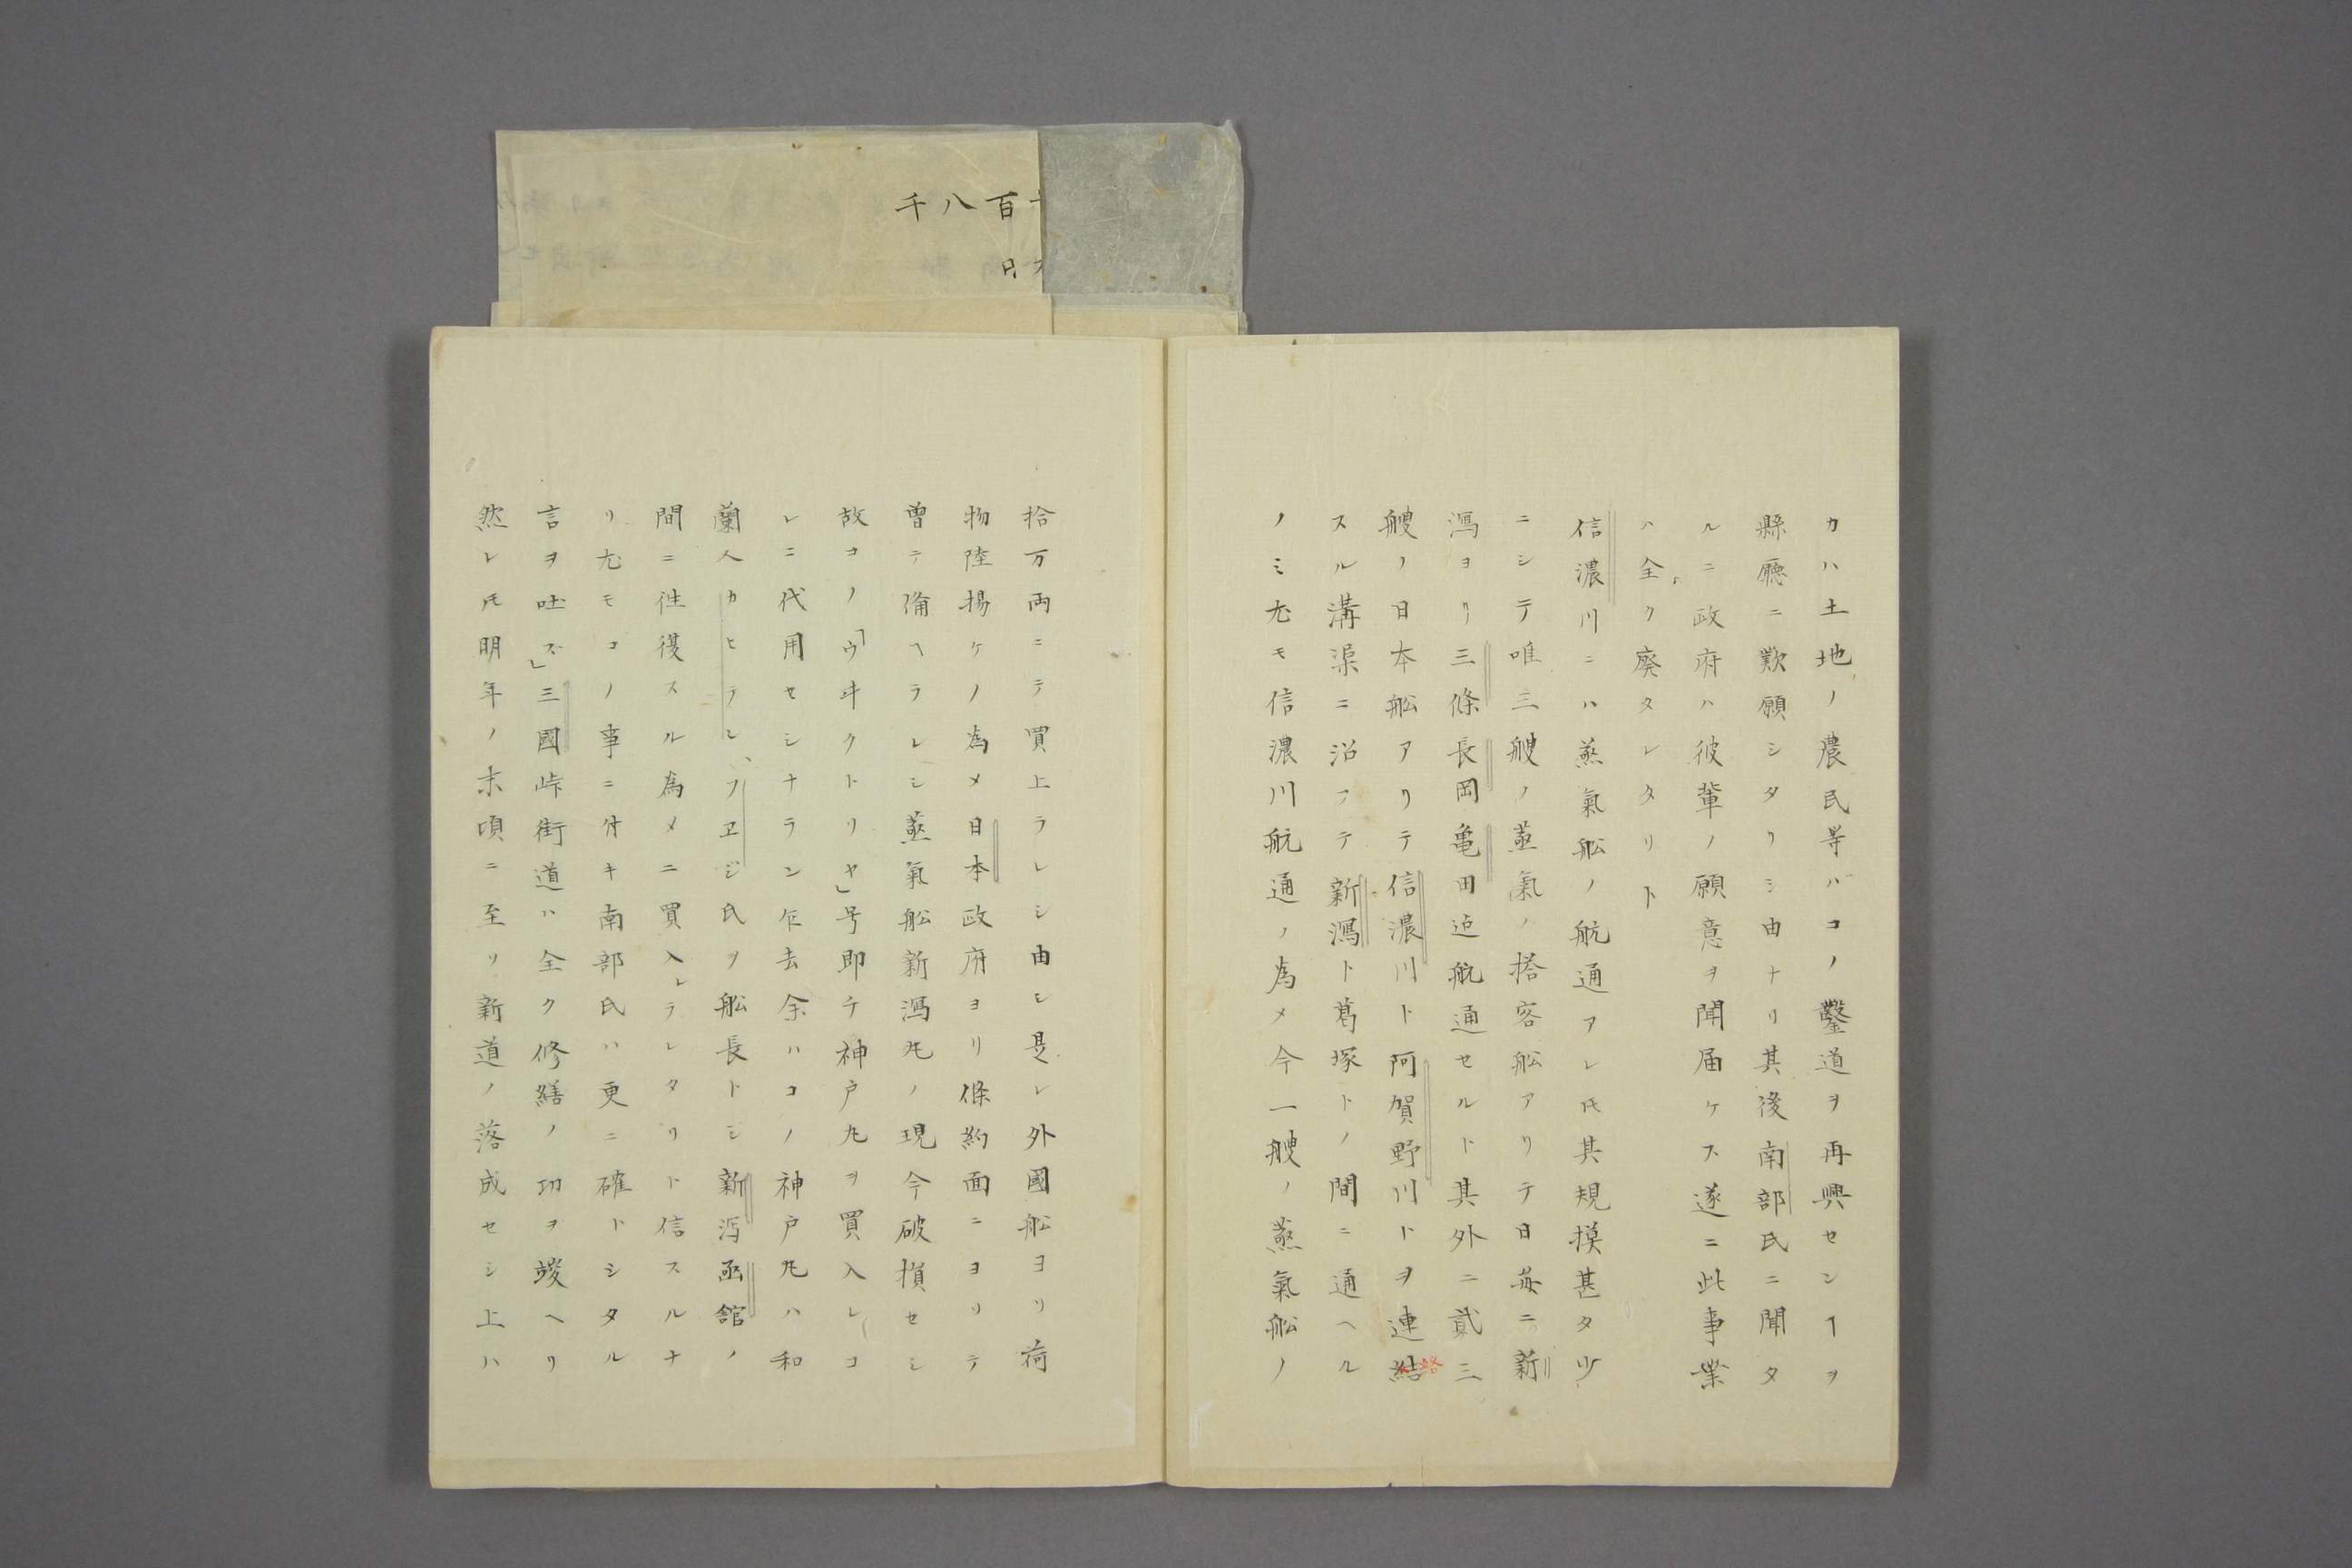 カハ土地ノ農民等ハコノ鑿道ヲ再興センヿヲ
縣廳ニ歎願シタリシ由ナリ其後南部氏ニ聞タ
ルニ政府ハ彼輩ノ願意ヲ聞届ケス遂ニ此事業
ハ全ク廃タレタリト
信濃川ニハ蒸氣舩ノ航通アレ𪜈其規摸甚タ少
ニシテ唯三艘ノ蒸氣ノ搭客舩アリテ日毎ニ新
潟ヨリ三條長岡亀田迠航通セルト其外ニ貳三
艘ノ日本舩アリテ信濃川ト阿賀野川トヲ連結
スル溝渠ニ沿フテ新潟ト葛塚トノ間ニ通ヘル
ノミ尤モ信濃川航通ノ為メ今一艘ノ蒸氣舩ノ
拾万両ニテ買上ラレシ由シ是レ外國舩ヨリ荷
物陸揚ケノ為メ日本政府ヨリ條約面ニヨリテ
曽テ備ヘラレシ蒸氣舩新潟丸ノ現今破損セシ
故コノ「ウヰクトリヤ」号即チ神戸丸ヲ買入レコ
レニ代用セシナラン乍去余ハコノ神戸丸ハ和
蘭人カヒテレ、フヱジ氏ヲ舩長トシ新潟函舘ノ
間ニ徃復スル為メニ買入レラレタリト信スルナ
リ尤モコノ事ニ付キ南部氏ハ更ニ確トシタル
言ヲ吐ズ」三國峠街道ハ全ク修繕ノ功ヲ竣ヘリ
然レ𪜈明年ノ末頃ニ至リ新道ノ落成セシ上ハ
百八千